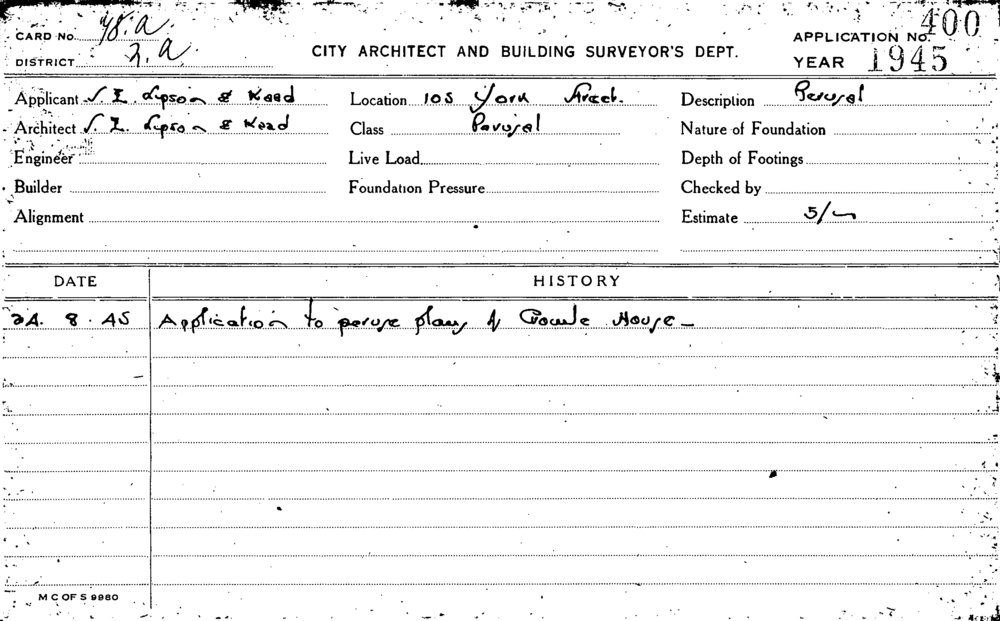 CARD No. 48.A
DISTRICT 2.A.
CITY ARCHITECT AND BUILDING SURVEYOR'S DEPT.
APPLICATION No. 400
YEAR 1945
Applicant S. E. Lipson & Kaad Location 105 York Street. Description Perusal
Architect S. E. Lipson & Kaad Class Perusal Nature of Foundation
Engineer Live Load Depth of Footings
Builder Foundation Pressure Checked by
Alignment Estimate 5/-
DATE HISTORY
24. 8. 45 Application to peruse plans of House –
M C OF S 9980